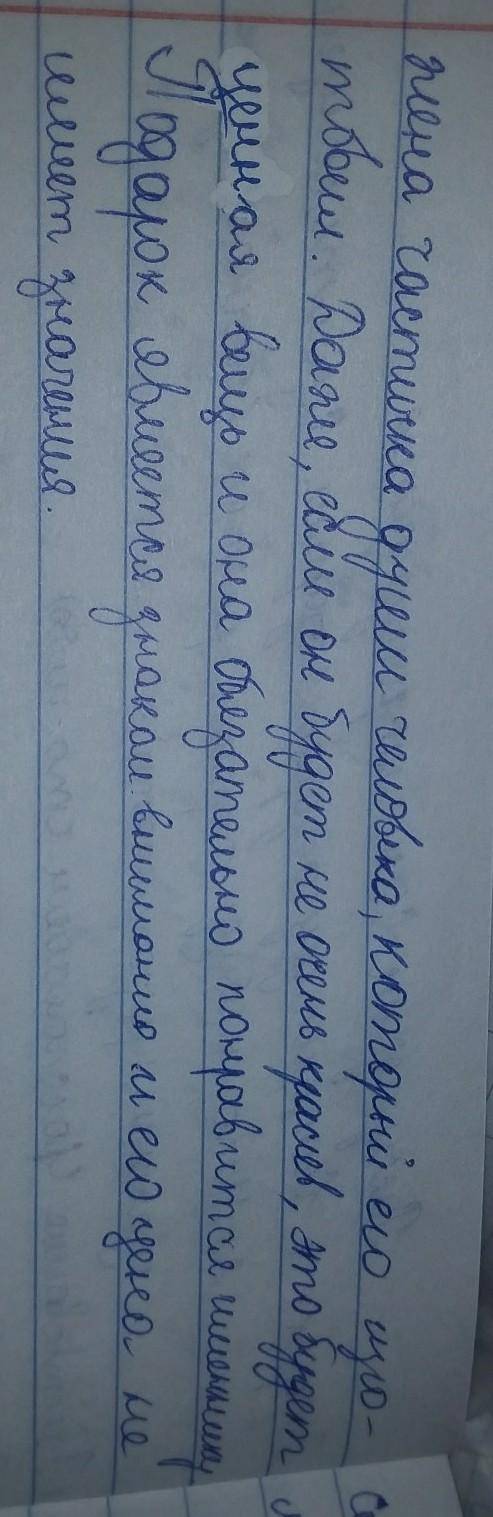 жена частичка души человека, который его изго-
товил. Даже, если он будет не очень красив, это будет
ценная вещь и она обезательно понравится имениннику,
Подарок является знаком внимания и его цена не
имеет значения.